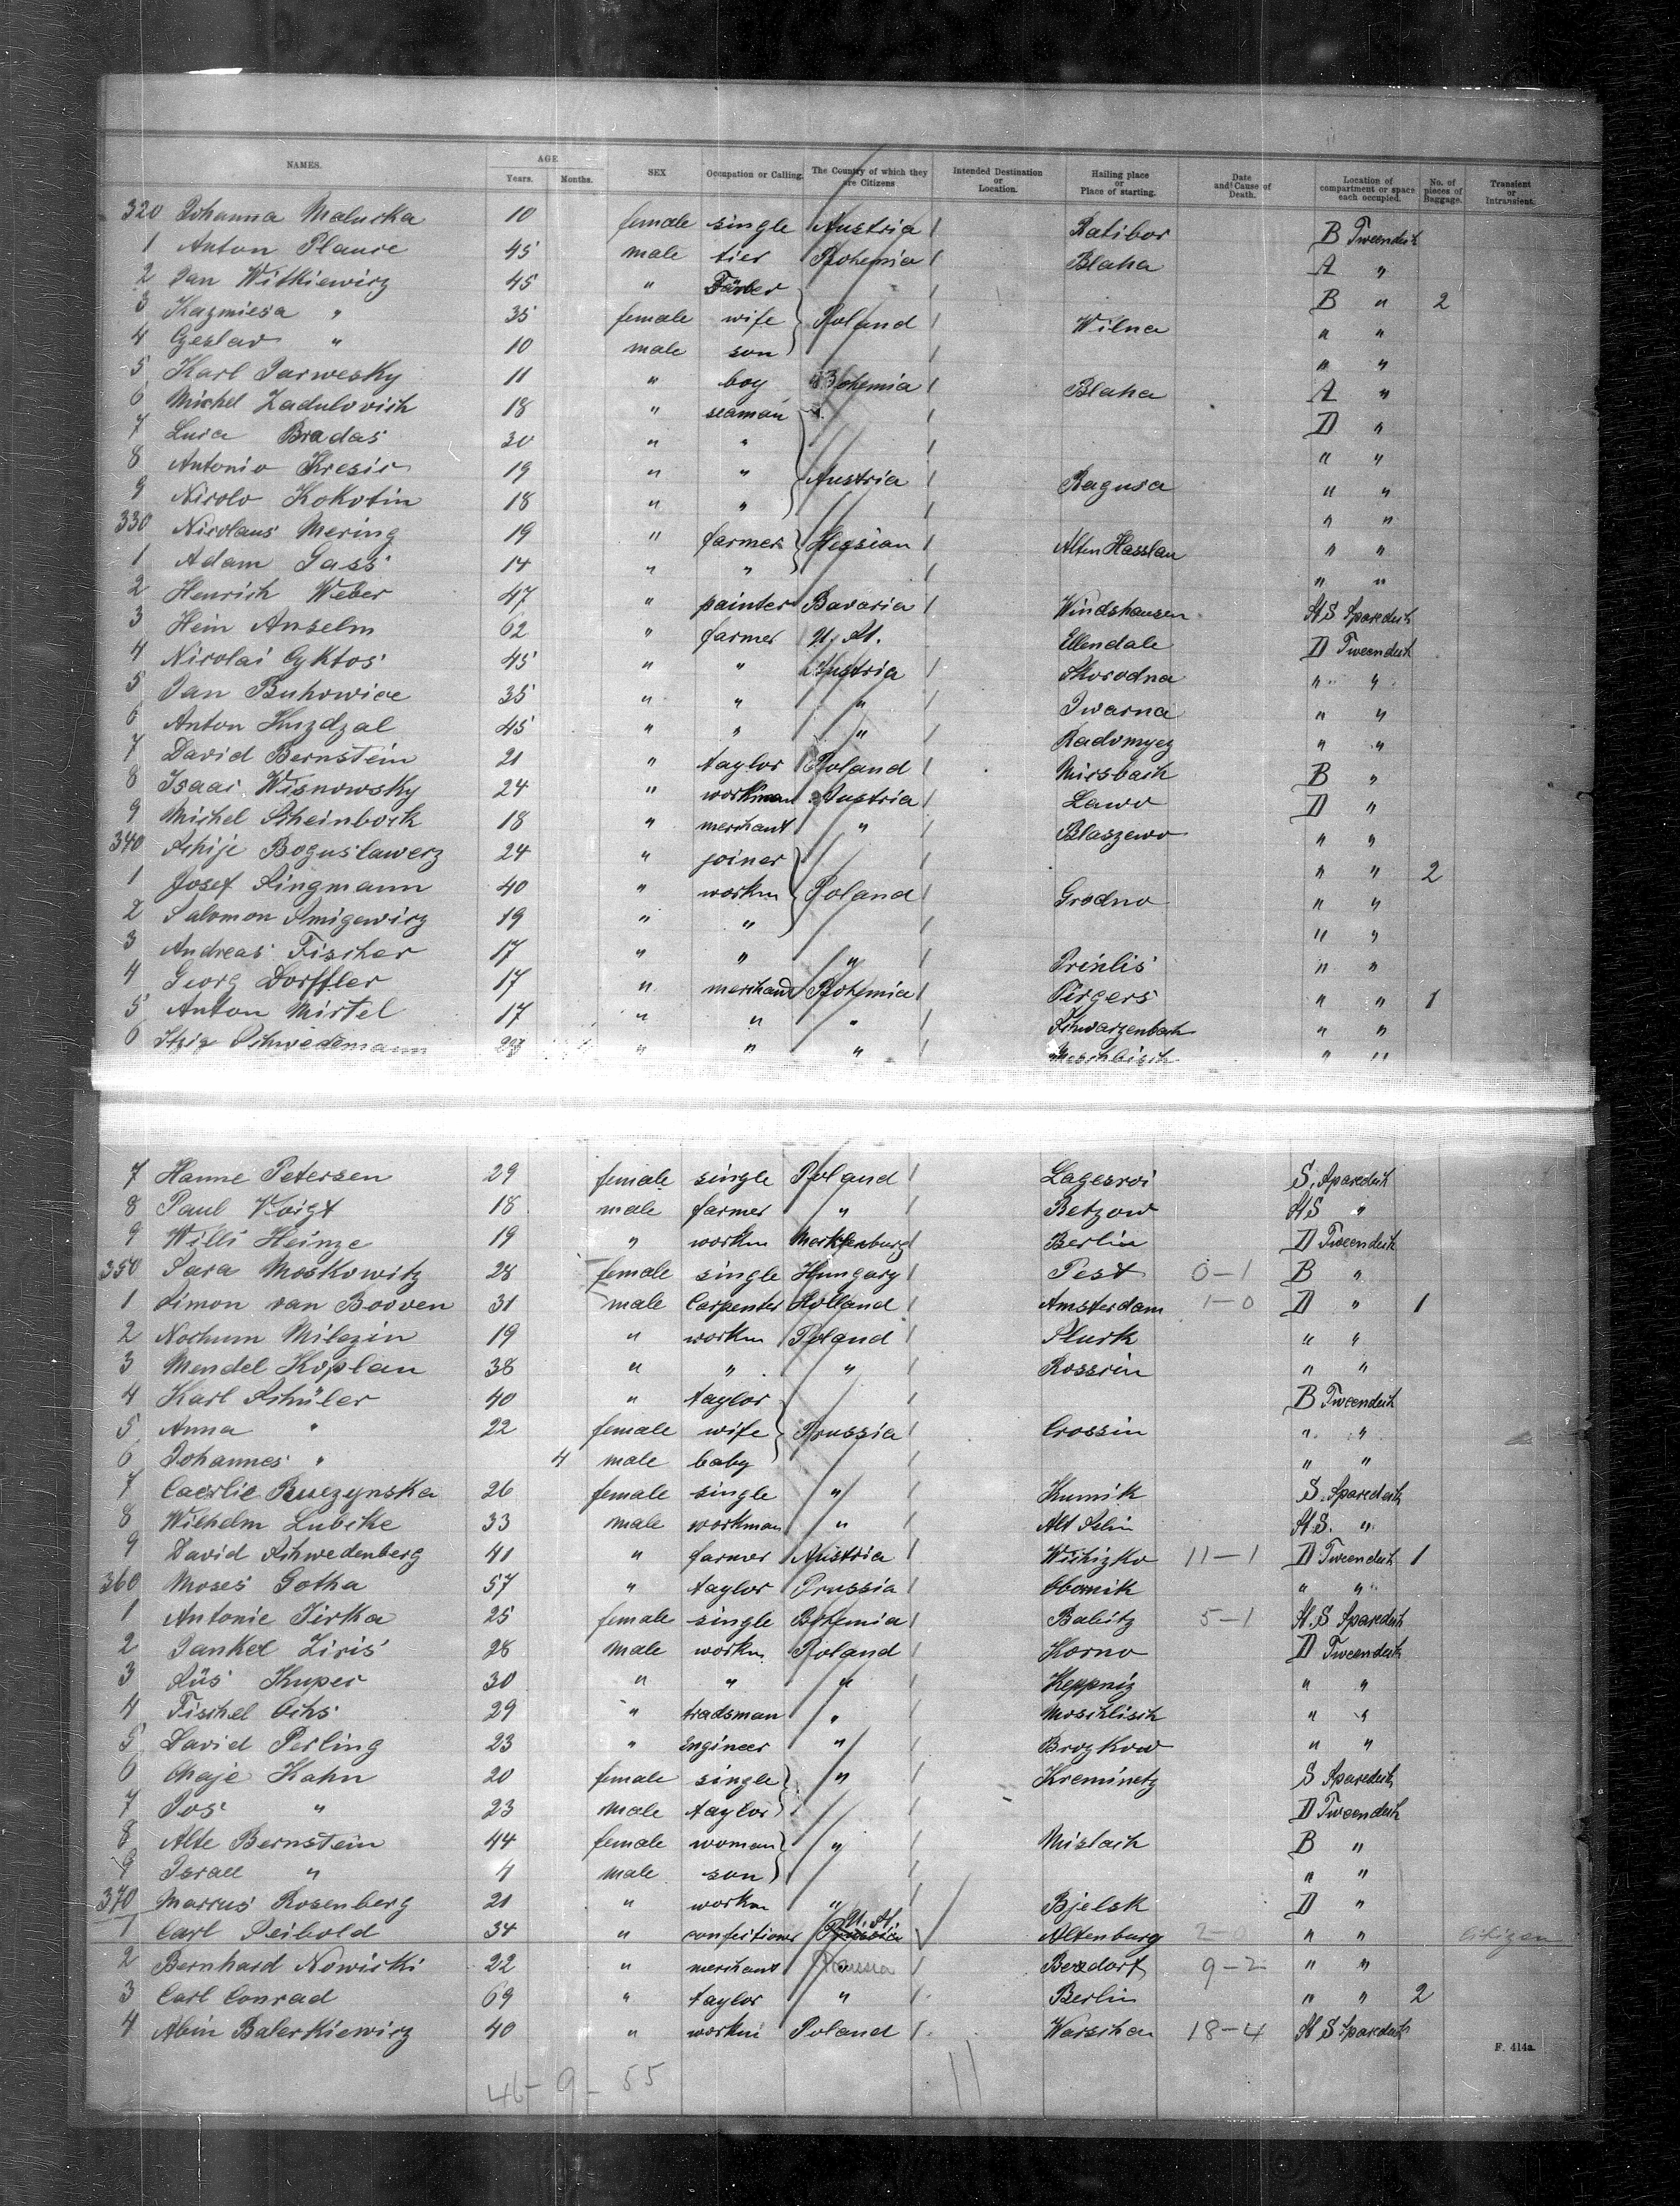 NAMES. AGE Years. Months. SEX Occupation or Calling. The Country of which they are Citizens Intended Destination or Location. Hailing place or Place of starting. Date and Cause of Death. Location of compartment or space each occupied. No. of pieces of Baggage. Transient or Intransient.
320 Johanna Maluska 10 female single Austria Ratibor B Tweendeck
1 Anton 45 male Bohemia Blaha A "
2 Jan Witkiewicz 45 " B " 2
3 " 35 female wife Poland Wilna " "
4 Geslav " 10 male son " "
5 Karl Jarwesky 11 " boy Bohemia Blaha A "
6 Michel Zadulovich 18 " seaman D "
7 Luca Bradas 30 " " " "
8 Antonio Kresic 19 " " Austria Ragusa " "
9 Nicolo Kokotin 18 " " " "
330 Nicolaus Mering 19 " farmer Hessian Alten Hasslau " "
1 Adam Gass 14 " " " "
2 Henrich Weber 47 " painter Bavaria Windshausen St S Sparedeck
3 Hein Anselm 62 " farmer U. St. Ellendale D Tweendeck
4 Nicolai Cyktos 45 " " Austria Skorodna " "
5 Jan Buhowice 35 " " " Twarna " "
6 Anton Kuzdzal 45 " " " Radomyez " "
7 David Bernstein 21 " taylor Poland Mirsbach B "
8 Isaac Wisnowsky 24 " workman Austria Lawo D "
9 Michel Scheinbock 18 " merchant " Blaszewo " "
340 Boguslawerz 24 " joiner " " 2
1 Josef Singmann 40 " workm Poland Grodno " "
2 Salomon Smigewicz 19 " " " "
3 Andreas Fischer 17 " " " Prinlis " "
4 Georg Dorffler 17 " merchand Bohemia Pirgers " " 1
5 Anton Mirtel 17 " " " Schwarzenbach " "
6 Itzig Schwedemann " " " " "
7 Hanne Petersen 29 female single Poland S. Sparedeck
8 Paul Voigt 18 male farmer " Betzow St S "
9 Willi Heinze 19 " workm Mecklenburg Berlin D Tweendeck
350 Sara Moskowitz 28 female single Hungary Pest 0-1 B "
1 Simon van Booven 31 male Carpenter Holland Amsterdam 1-0 D " 1
2 Nochum Milezin 19 " workm Poland Sluck " "
3 Mendel Koplan 38 " " " Rossein " "
4 Karl Schüler 40 " taylor B Tweendeck
5 Anna " 22 female wife Prussia Crossin " "
6 Johannes " 4 male baby " "
7 Buczynska 26 female single " Kurnik S. Sparedeck
8 Wilhelm Lubcke 33 male workman " St S. "
9 David Schwedenberg 41 " farmer Austria Wichizko 11-1 D Tweendeck 1
360 Moses Gotha 57 " taylor Prussia Obornik " "
1 Antonie Jirka 25 female single Bohemia Babitz 5-1 St. S Sparedeck
2 Jankel Ziris 28 male workm. Poland Korno D Tweendeck
3 Süs Kuper 30 " " " Keppniz " "
4 Fischel Ochs 29 " tradsman " Moschlisch " "
5 David Perling 23 " Engineer " Brozkow " "
6 Chaje Kahn 20 female single " Kreminetz S Sparedeck
7 Jos " 23 male taylor D Tweendeck
8 Alte Bernstein 44 female woman " Mislach B "
9 Israel " 4 male son " "
370 Marcus Rosenberg 21 " workm " Bjelsk D "
1 Carl Seibold 34 " confectioner U. St. Altenburg 2-0 " " Citizen
2 Bernhard Nowicki 22 " merchant Prussia Berzdorf 9-2 " "
3 Carl Conrad 69 " taylor " Berlin " " 2
4 Albin Balerkiewicz 40 " workm Poland Warschau 18-4 St S Sparedeck
F. 414a.
46-9-55 11